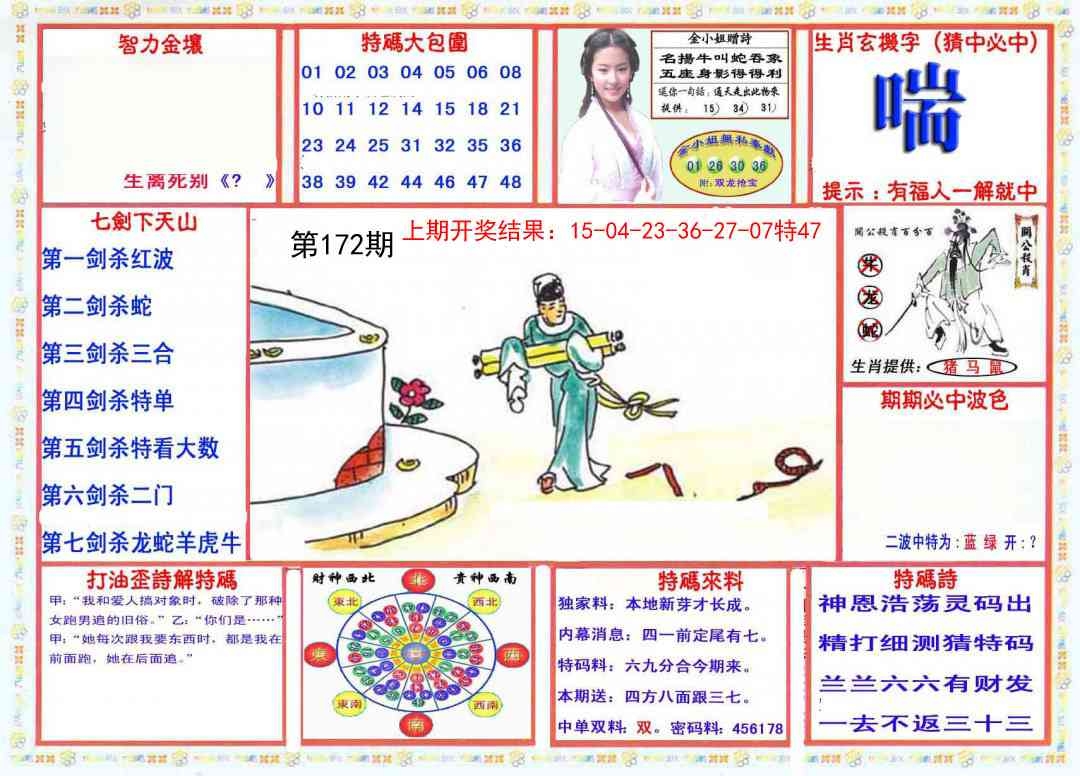 智力金壤
生离死别《? 》
特碼大包圍
01 02 03 04 05 06 08
10 11 12 14 15 18 21
23 24 25 31 32 35 36
38 39 42 44 46 47 48
金小姐赠詩
名揚牛叫蛇吞象
五座身影得得利
送你一句话：通天走出此物来
提供： 15） 34） 31）
金小姐無私奉獻
01 26 30 36
附：双龙抢宝
生肖玄機字（猜中必中）
喘
提示：有福人一解就中
七劍下天山
第一剑杀红波
第二剑杀蛇
第三剑杀三合
第四剑杀特单
第五剑杀特看大数
第六剑杀二门
第七剑杀龙蛇羊虎牛
第172期
上期开奖结果：15-04-23-36-27-07特47
關公殺肖百分百
關公殺肖
龙
蛇
生肖提供：猪 马 鼠
期期必中波色
二波中特为：蓝 绿 开：？
打油歪詩解特碼
甲：“我和爱人搞对象时，破除了那种
女跑男追的旧俗。”乙：“你们是……”
甲：“她每次跟我要东西时，都是我在
前面跑，她在后面追。”
财神西北
貴神西南
北
東北
西北
東
西
東南
西南
南
特碼來料
独家料：本地新芽才长成。
内幕消息：四一前定尾有七。
特码料：六九分合今期来。
本期送：四方八面跟三七。
中单双料：双。密码料：456178
特碼詩
神恩浩荡灵码出
精打细测猜特码
兰兰六六有财发
一去不返三十三